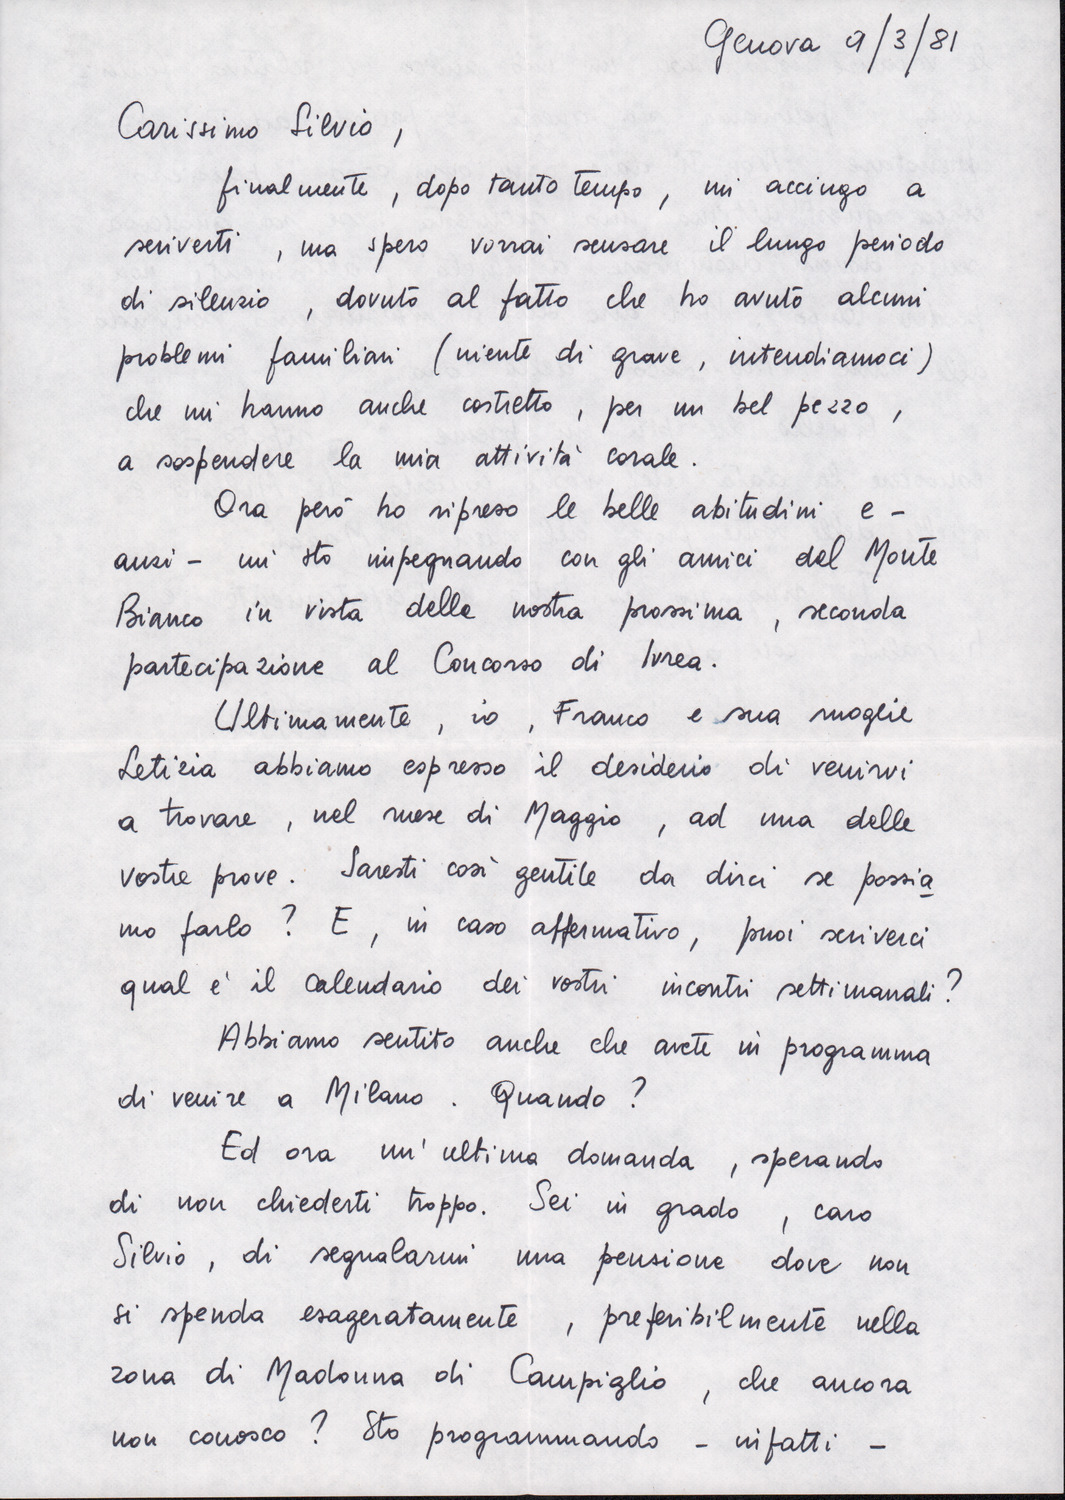 Genova 9/3/81
Carissimo Silvio,
finalmente, dopo tanto tempo, mi accingo a
scriverti, ma spero vorrai scusare il lungo periodo
di silenzio, dovuto al fatto che ho avuto alcuni
problemi familiari (niente di grave, intendiamoci)
che mi hanno anche costretto, per un bel pezzo,
a sospendere la mia attività corale.
Ora però ho ripreso le belle abitudini e -
anzi - mi sto impegnando con gli amici del Monte
Bianco in vista della nostra prossima, seconda
partecipazione al Concorso di Ivrea.
Ultimamente, io, Franco e sua moglie
Letizia abbiamo espresso il desiderio di venirvi
a trovare, nel mese di Maggio, ad una delle
vostre prove. Saresti così gentile da dirci se possia
mo farlo? E, in caso affermativo, puoi scriverci
qual è il calendario dei vostri incontri settimanali?
Abbiamo sentito anche che avete in programma
di venire a Milano. Quando?
Ed ora un'ultima domanda, sperando
di non chiederti troppo. Sei in grado, caro
Silvio, di segnalarmi una pensione dove non
si spenda esageratamente, preferibilmente nella
zona di Madonna di Campiglio, che ancora
non conosco? Sto programmando - infatti -